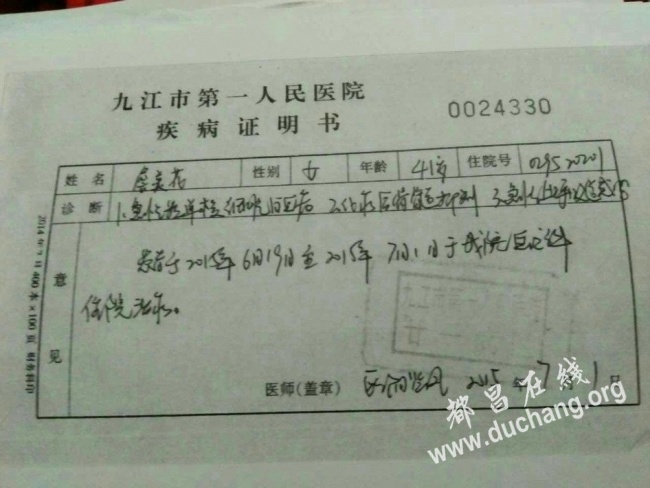 九江市第一人民医院
疾病证明书
0024330
姓名 性别 女 年龄 41岁 住院号 029520201
诊断 1.急性 单核细胞白血病 2.化疗后骨髓抑制 3.急性上呼吸道感染
意见
患者于2015年6月19日至2015年7月1日于我院血液科
住院治疗。
医师(盖章) 2015年7月1日
2014年7月400本×100页 财务科印
都昌在线
www.duchang.org